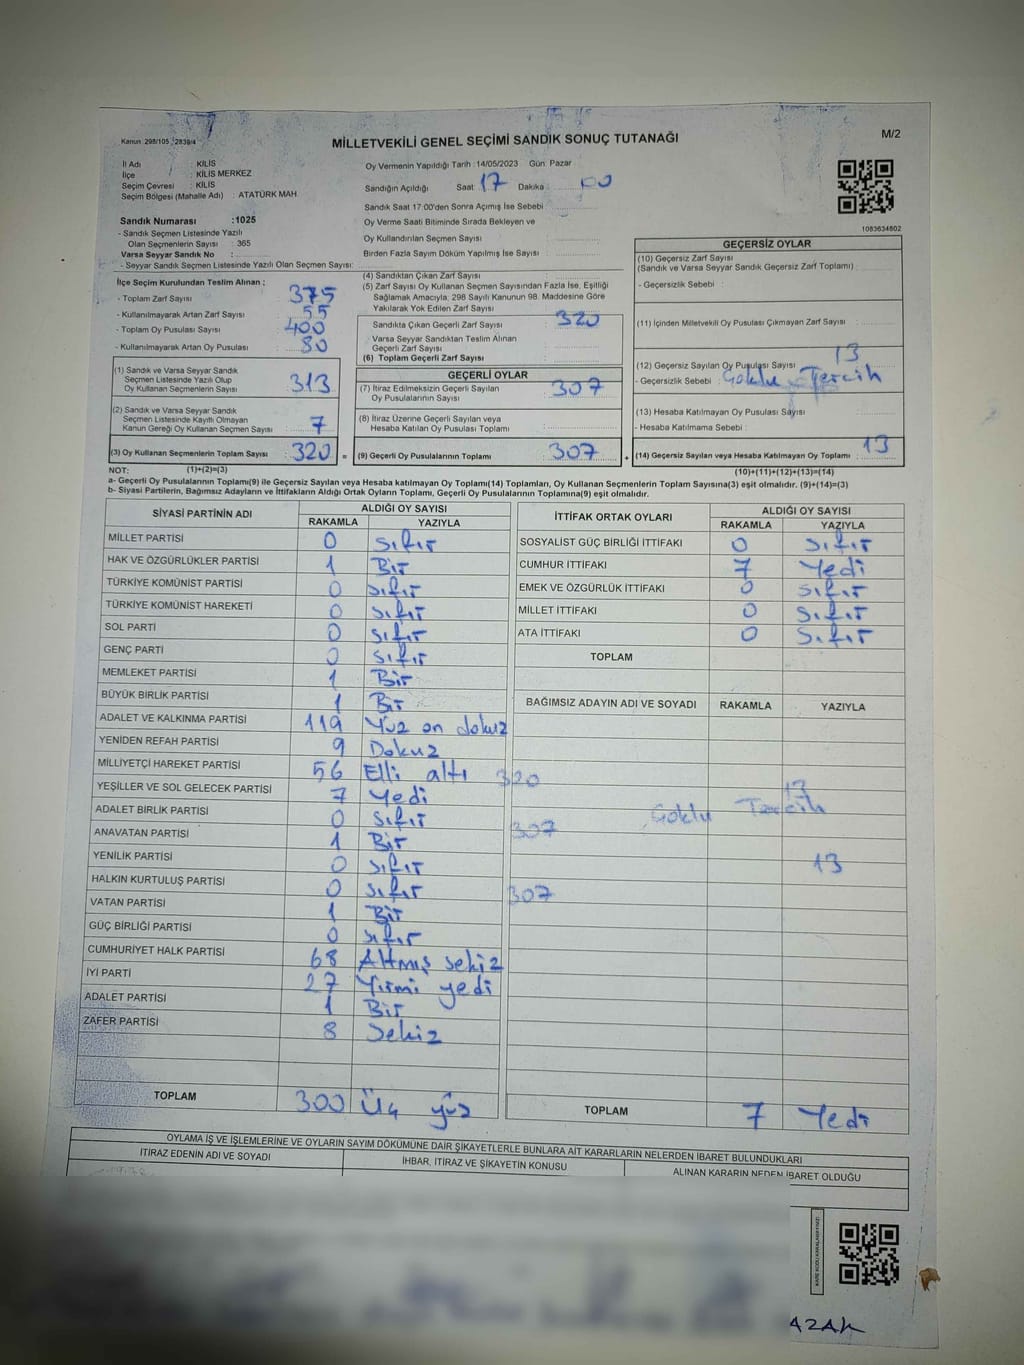 Kanun 298/105 , 2839/4
MİLLETVEKİLİ GENEL SEÇİMİ SANDIK SONUÇ TUTANAĞI
M/2
İl Adı : KİLİS
İlçe : KİLİS MERKEZ
Seçim Çevresi : KİLİS
Seçim Bölgesi (Mahalle Adı) : ATATÜRK MAH
Oy Vermenin Yapıldığı Tarih : 14/05/2023 Gün: Pazar
Sandığın Açıldığı Saat 17 Dakika : 00
Sandık Saat 17:00'den Sonra Açmış İse Sebebi
Oy Verme Saati Bitiminde Sırada Bekleyen ve
Oy Kullandırılan Seçmen Sayısı
Birden Fazla Sayım Döküm Yapılmış İse Sayısı :
1083634802
Sandık Numarası :1025
- Sandık Seçmen Listesinde Yazılı
Olan Seçmenlerin Sayısı : 365
Varsa Seyyar Sandık No :
- Seyyar Sandık Seçmen Listesinde Yazılı Olan Seçmen Sayısı:
İlçe Seçim Kurulundan Teslim Alınan :
- Toplam Zarf Sayısı 375
- Kullanılmayarak Artan Zarf Sayısı 55
- Toplam Oy Pusulası Sayısı 400
- Kullanılmayarak Artan Oy Pusulası 80
(1) Sandık ve Varsa Seyyar Sandık
Seçmen Listesinde Yazılı Olup
Oy Kullanan Seçmenlerin Sayısı 313
(2) Sandık ve Varsa Seyyar Sandık
Seçmen Listesinde Kayıtlı Olmayan
Kanun Gereği Oy Kullanan Seçmen Sayısı 7
(3) Oy Kullanan Seçmenlerin Toplam Sayısı 320 =
(4) Sandıktan Çıkan Zarf Sayısı
(5) Zarf Sayısı Oy Kullanan Seçmen Sayısından Fazla İse, Eşitliği
Sağlamak Amacıyla; 298 Sayılı Kanunun 98. Maddesine Göre
Yakılarak Yok Edilen Zarf Sayısı
Sandıkta Çıkan Geçerli Zarf Sayısı 320
Varsa Seyyar Sandıktan Teslim Alınan
Geçerli Zarf Sayısı
(6) Toplam Geçerli Zarf Sayısı
GEÇERLİ OYLAR
(7) İtiraz Edilmeksizin Geçerli Sayılan
Oy Pusulalarının Sayısı 307
(8) İtiraz Üzerine Geçerli Sayılan veya
Hesaba Katılan Oy Pusulası Toplamı
(9) Geçerli Oy Pusulalarının Toplamı 307 +
GEÇERSİZ OYLAR
(10) Geçersiz Zarf Sayısı
(Sandık ve Varsa Seyyar Sandık Geçersiz Zarf Toplamı)
- Geçersizlik Sebebi :
(11) İçinden Milletvekili Oy Pusulası Çıkmayan Zarf Sayısı
(12) Geçersiz Sayılan Oy Pusulası Sayısı 13
- Geçersizlik Sebebi : Çoklu Tercih
(13) Hesaba Katılmayan Oy Pusulası Sayısı
- Hesaba Katılmama Sebebi :
(14) Geçersiz Sayılan veya Hesaba Katılmayan Oy Toplamı 13
NOT: (1)+(2)=(3)
(10)+(11)+(12)+(13)=(14)
a- Geçerli Oy Pusulalarının Toplamı(9) ile Geçersiz Sayılan veya Hesaba katılmayan Oy Toplamı(14) Toplamları, Oy Kullanan Seçmenlerin Toplam Sayısına(3) eşit olmalıdır. (9)+(14)=(3)
b- Siyasi Partilerin, Bağımsız Adayların ve İttifakların Aldığı Ortak Oyların Toplamı, Geçerli Oy Pusulalarının Toplamına(9) eşit olmalıdır.
SİYASİ PARTİNİN ADI ALDIĞI OY SAYISI
RAKAMLA YAZIYLA
MİLLET PARTİSİ 0 Sıfır
HAK VE ÖZGÜRLÜKLER PARTİSİ 1 Bir
TÜRKİYE KOMÜNİST PARTİSİ 0 Sıfır
TÜRKİYE KOMÜNİST HAREKETİ 0 Sıfır
SOL PARTİ 0 Sıfır
GENÇ PARTİ 0 Sıfır
MEMLEKET PARTİSİ 1 Bir
BÜYÜK BİRLİK PARTİSİ 1 Bir
ADALET VE KALKINMA PARTİSİ 119 Yüz on dokuz
YENİDEN REFAH PARTİSİ 9 Dokuz
MİLLİYETÇİ HAREKET PARTİSİ 56 Elli altı
YEŞİLLER VE SOL GELECEK PARTİSİ 7 Yedi
ADALET BİRLİK PARTİSİ 0 Sıfır
ANAVATAN PARTİSİ 1 Bir
YENİLİK PARTİSİ 0 Sıfır
HALKIN KURTULUŞ PARTİSİ 0 Sıfır
VATAN PARTİSİ 1 Bir
GÜÇ BİRLİĞİ PARTİSİ 0 Sıfır
CUMHURİYET HALK PARTİSİ 68 Altmış sekiz
İYİ PARTİ 27 Yirmi yedi
ADALET PARTİSİ 1 Bir
ZAFER PARTİSİ 8 Sekiz
TOPLAM 300 Üç yüz
İTTİFAK ORTAK OYLARI ALDIĞI OY SAYISI
RAKAMLA YAZIYLA
SOSYALİST GÜÇ BİRLİĞİ İTTİFAKI 0 Sıfır
CUMHUR İTTİFAKI 7 Yedi
EMEK VE ÖZGÜRLÜK İTTİFAKI 0 Sıfır
MİLLET İTTİFAKI 0 Sıfır
ATA İTTİFAKI 0 Sıfır
TOPLAM
BAĞIMSIZ ADAYIN ADI VE SOYADI RAKAMLA YAZIYLA
320
13
Çoklu Tercih
307
13
307
TOPLAM 7 Yedi
OYLAMA İŞ VE İŞLEMLERİNE VE OYLARIN SAYIM DÖKÜMÜNE DAİR ŞİKAYETLERLE BUNLARA AİT KARARLARIN NELERDEN İBARET BULUNDUKLARI
İTİRAZ EDENİN ADI VE SOYADI
İHBAR, İTİRAZ VE ŞİKAYETİN KONUSU
ALINAN KARARIN NEDEN İBARET OLDUĞU
AZAK